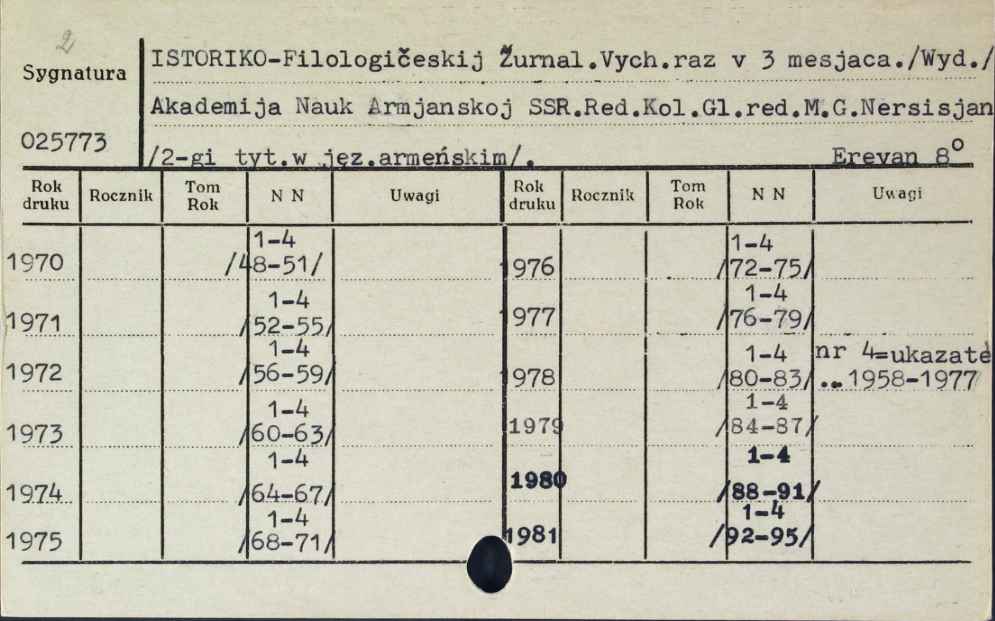 2
ISTORIKO-Filologičeskij Žurnal.Vych.raz v 3 mesjaca./Wyd./
Sygnatura
Akademija Nauk Armjanskoj SSR.Red.Kol.Gl.red.M.G.Nersisjan
025773
/2-gi tyt.w jęz.armeńskim/. Erevan 8°
Rok druku Rocznik Tom Rok N N Uwagi Rok druku Rocznik Tom Rok N N Uwagi
1970 1-4 /48-51/
1971 1-4 /52-55/
1972 1-4 /56-59/
1973 1-4 /60-63/
1974 1-4 /64-67/
1975 1-4 /68-71/
1976 1-4 /72-75/
1977 1-4 /76-79/
1978 1-4 /80-83/ nr 4=ukazate
..1958-1977
1979 1-4 /84-87/
1980 1-4 /88-91/
1981 1-4 /92-95/